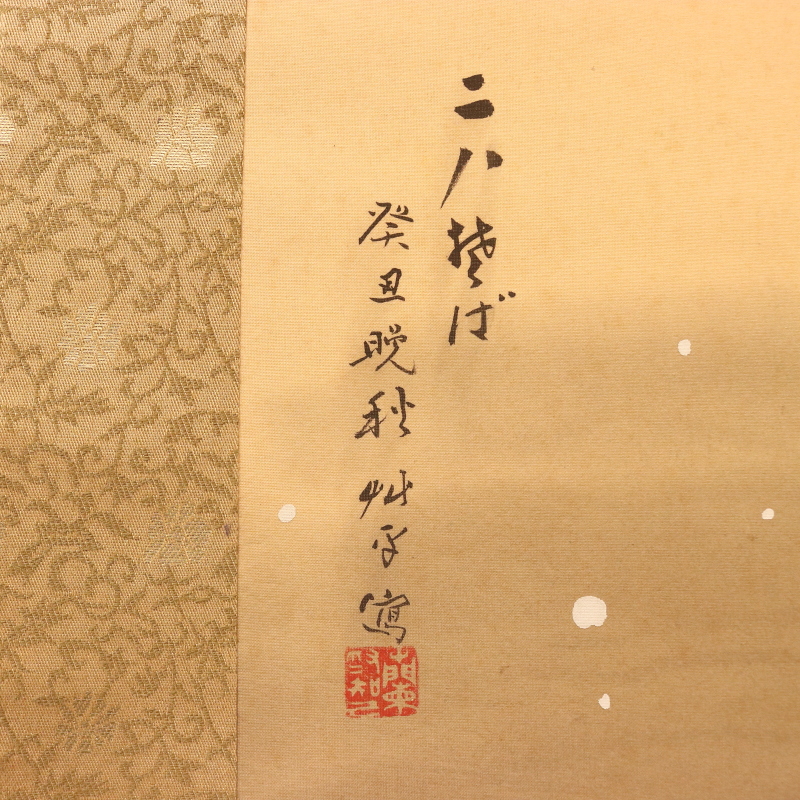 二八楚ば
癸丑晩秋艸平寫